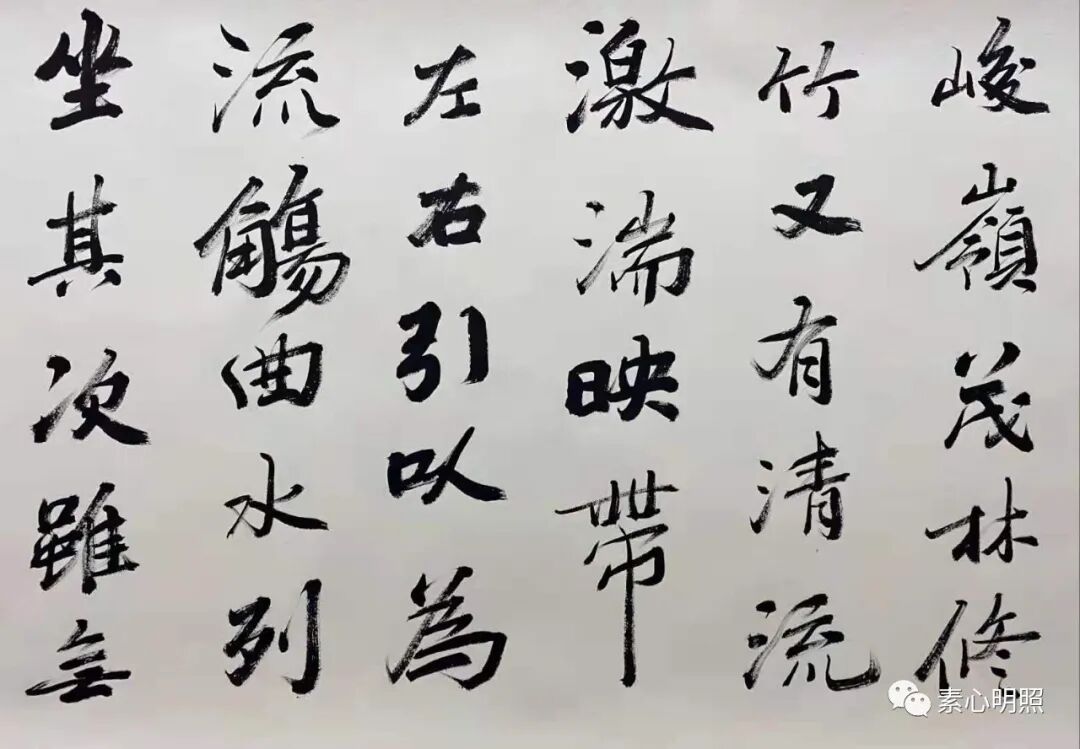 峻嶺茂林修
竹又有清流
激湍映帶
左右引以為
流觴曲水列
坐其次雖無
素心明照